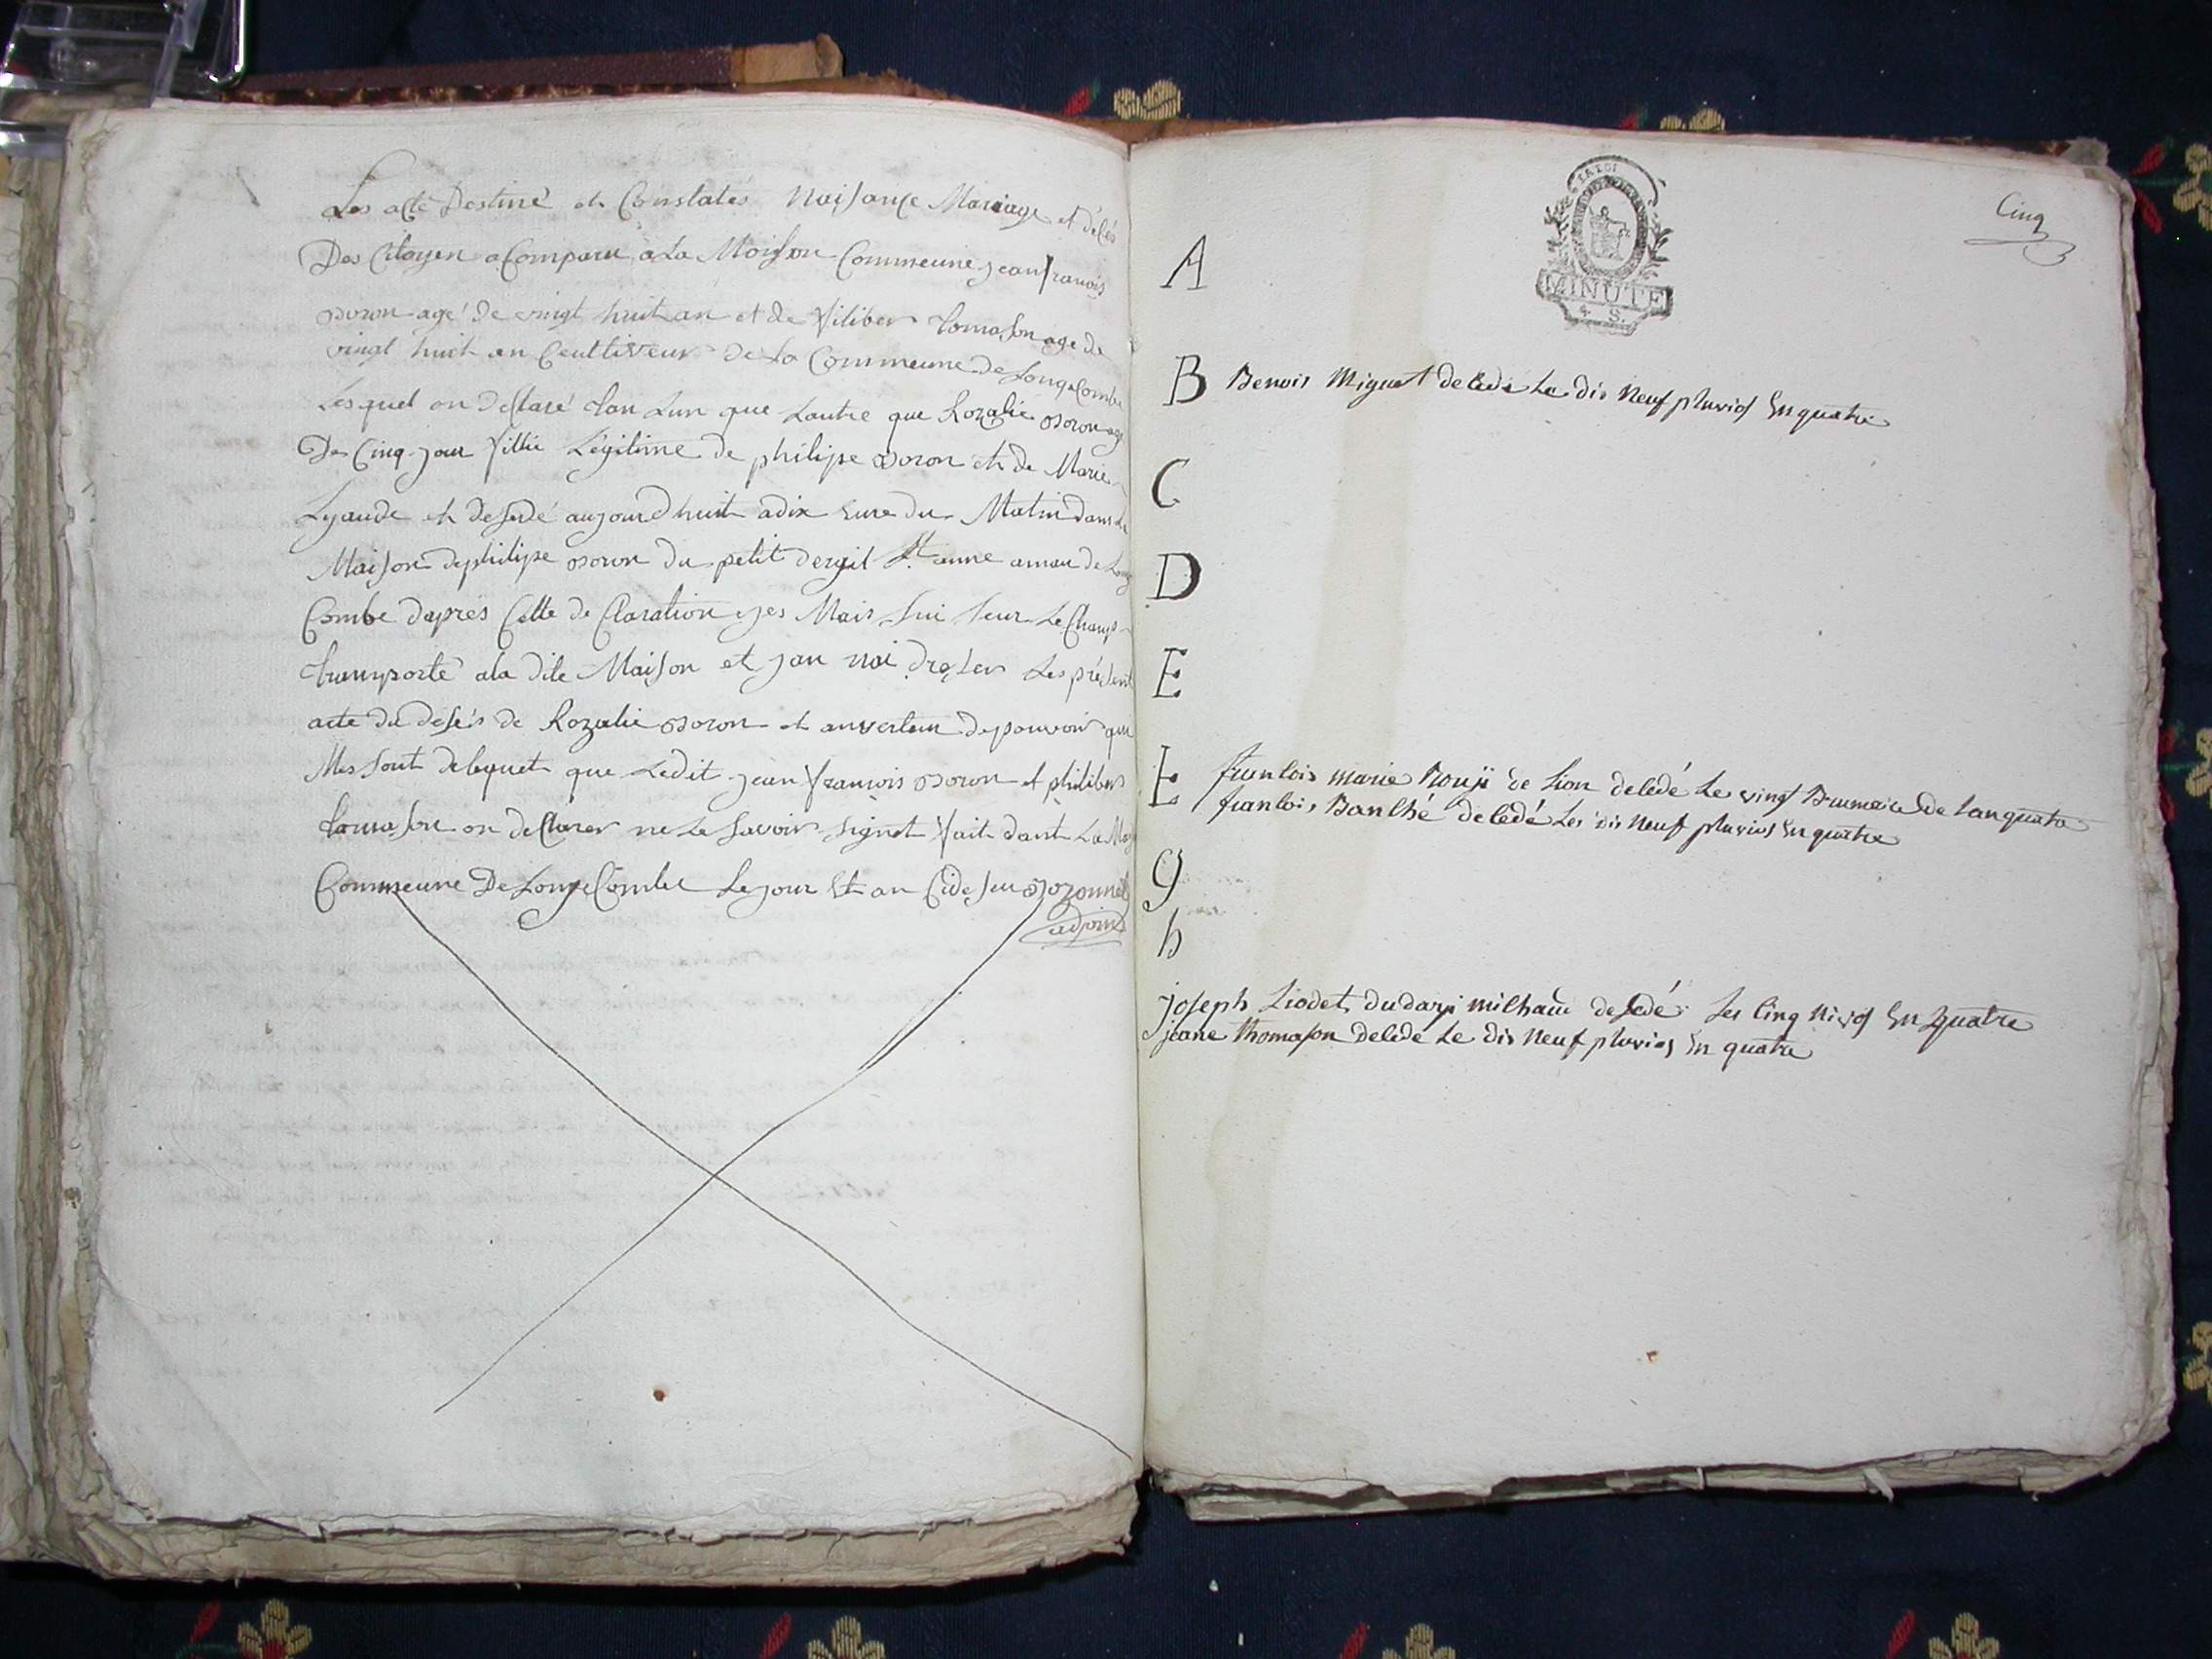 Les acte Destiné et Constatés Naisançe Mariage et décés
Des Citoyen a Comparu a La Maison Commeune jean franois
Boron agé de vingt huit an et de filiber tomason age de
vingt huit an Ceultiveur de La Commeune de Longecombe
Lesquel on desClaré tan Lun que Lautre que Rozalie Boron age
De Cinq jour fillie Légitime de philipe Boron et de Marie
Lyaude et desedé aujourdhuit adix eure du Matin dans La
Maison de philipe Boron du petit dergit St. anne amau de Long
Combe daprés Cette de Claration jes Mais sui seur Le Champ
transporté ala dite Maison et jan nai dresser Les présent
acte du desés de Rozalie Boron et anverteu de pouvoir qui
Mes sont deleguet que Ledit jean franois Boron et philiber
tomason on desClarer ne Le savoir signet fait dant La May
Commeune De LongeCombe Le jour Et an Cideseu Bozonnet
adjoint
Cinq
LA LOI
MINUTE
4. S.
A
B Benois Miguet decedé Le dis neuf pluvios En quatre
C
D
E
F francois marie de Lion decedé Le vingt Brumaire de Lan quatre
francois Banché decedé Les dis neuf pluvios En quatre
g
h
joseph Liodet du dargi milhau decedé Les Cinq nivos En quatre
jeane thomason decedé Le dis neuf pluvios En quatre